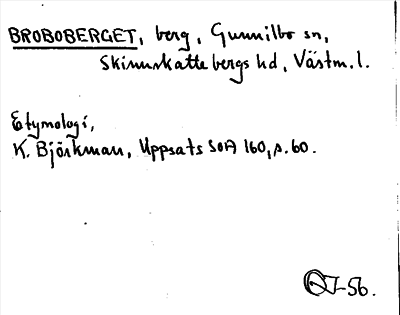 BROBOBERGET, berg, Gunnilbo sn,
Skinnskattebergs hd, Västm. l.
Etymologi,
K. Björkman, Uppsats SOA 160, s. 60.
-56.